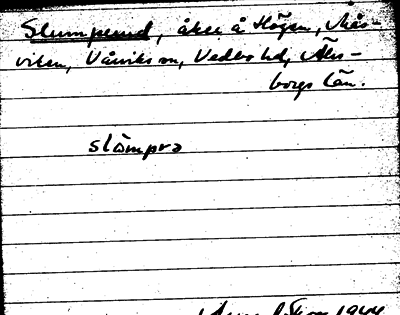 Slumperud, åker å Högen, När-
viken, Vårviks sn, Vedbo hd, Älvs-
borgs län.
slömpro
1944